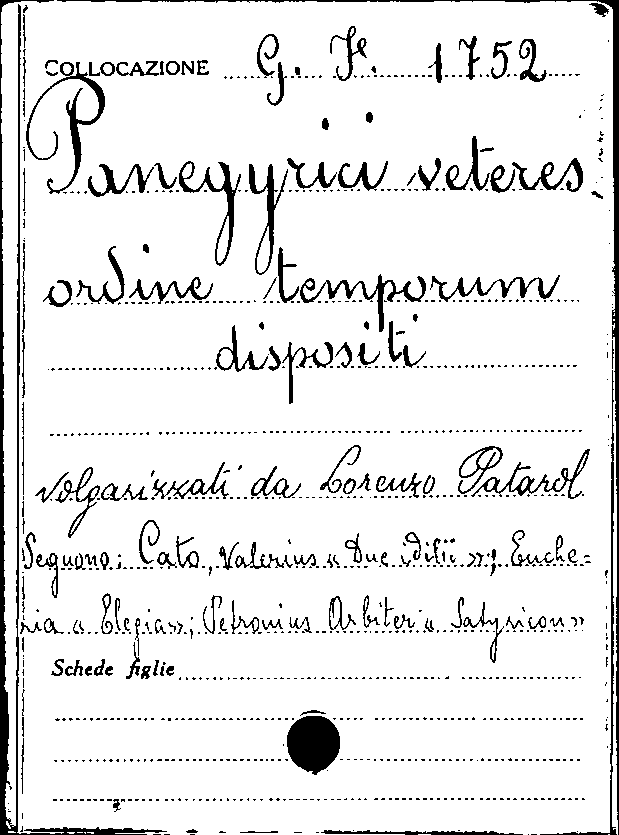 COLLOCAZIONE G. Fe. 1752
Panegyrici veteres
ordine temporum
dispositi
volgarizzati da Lorenzo Patarol
Seguono: Cato, Valerius « Due idilii »; Euche=
ria « Elegia»; Petronius Arbiter « Satyricon »
Schede figlie